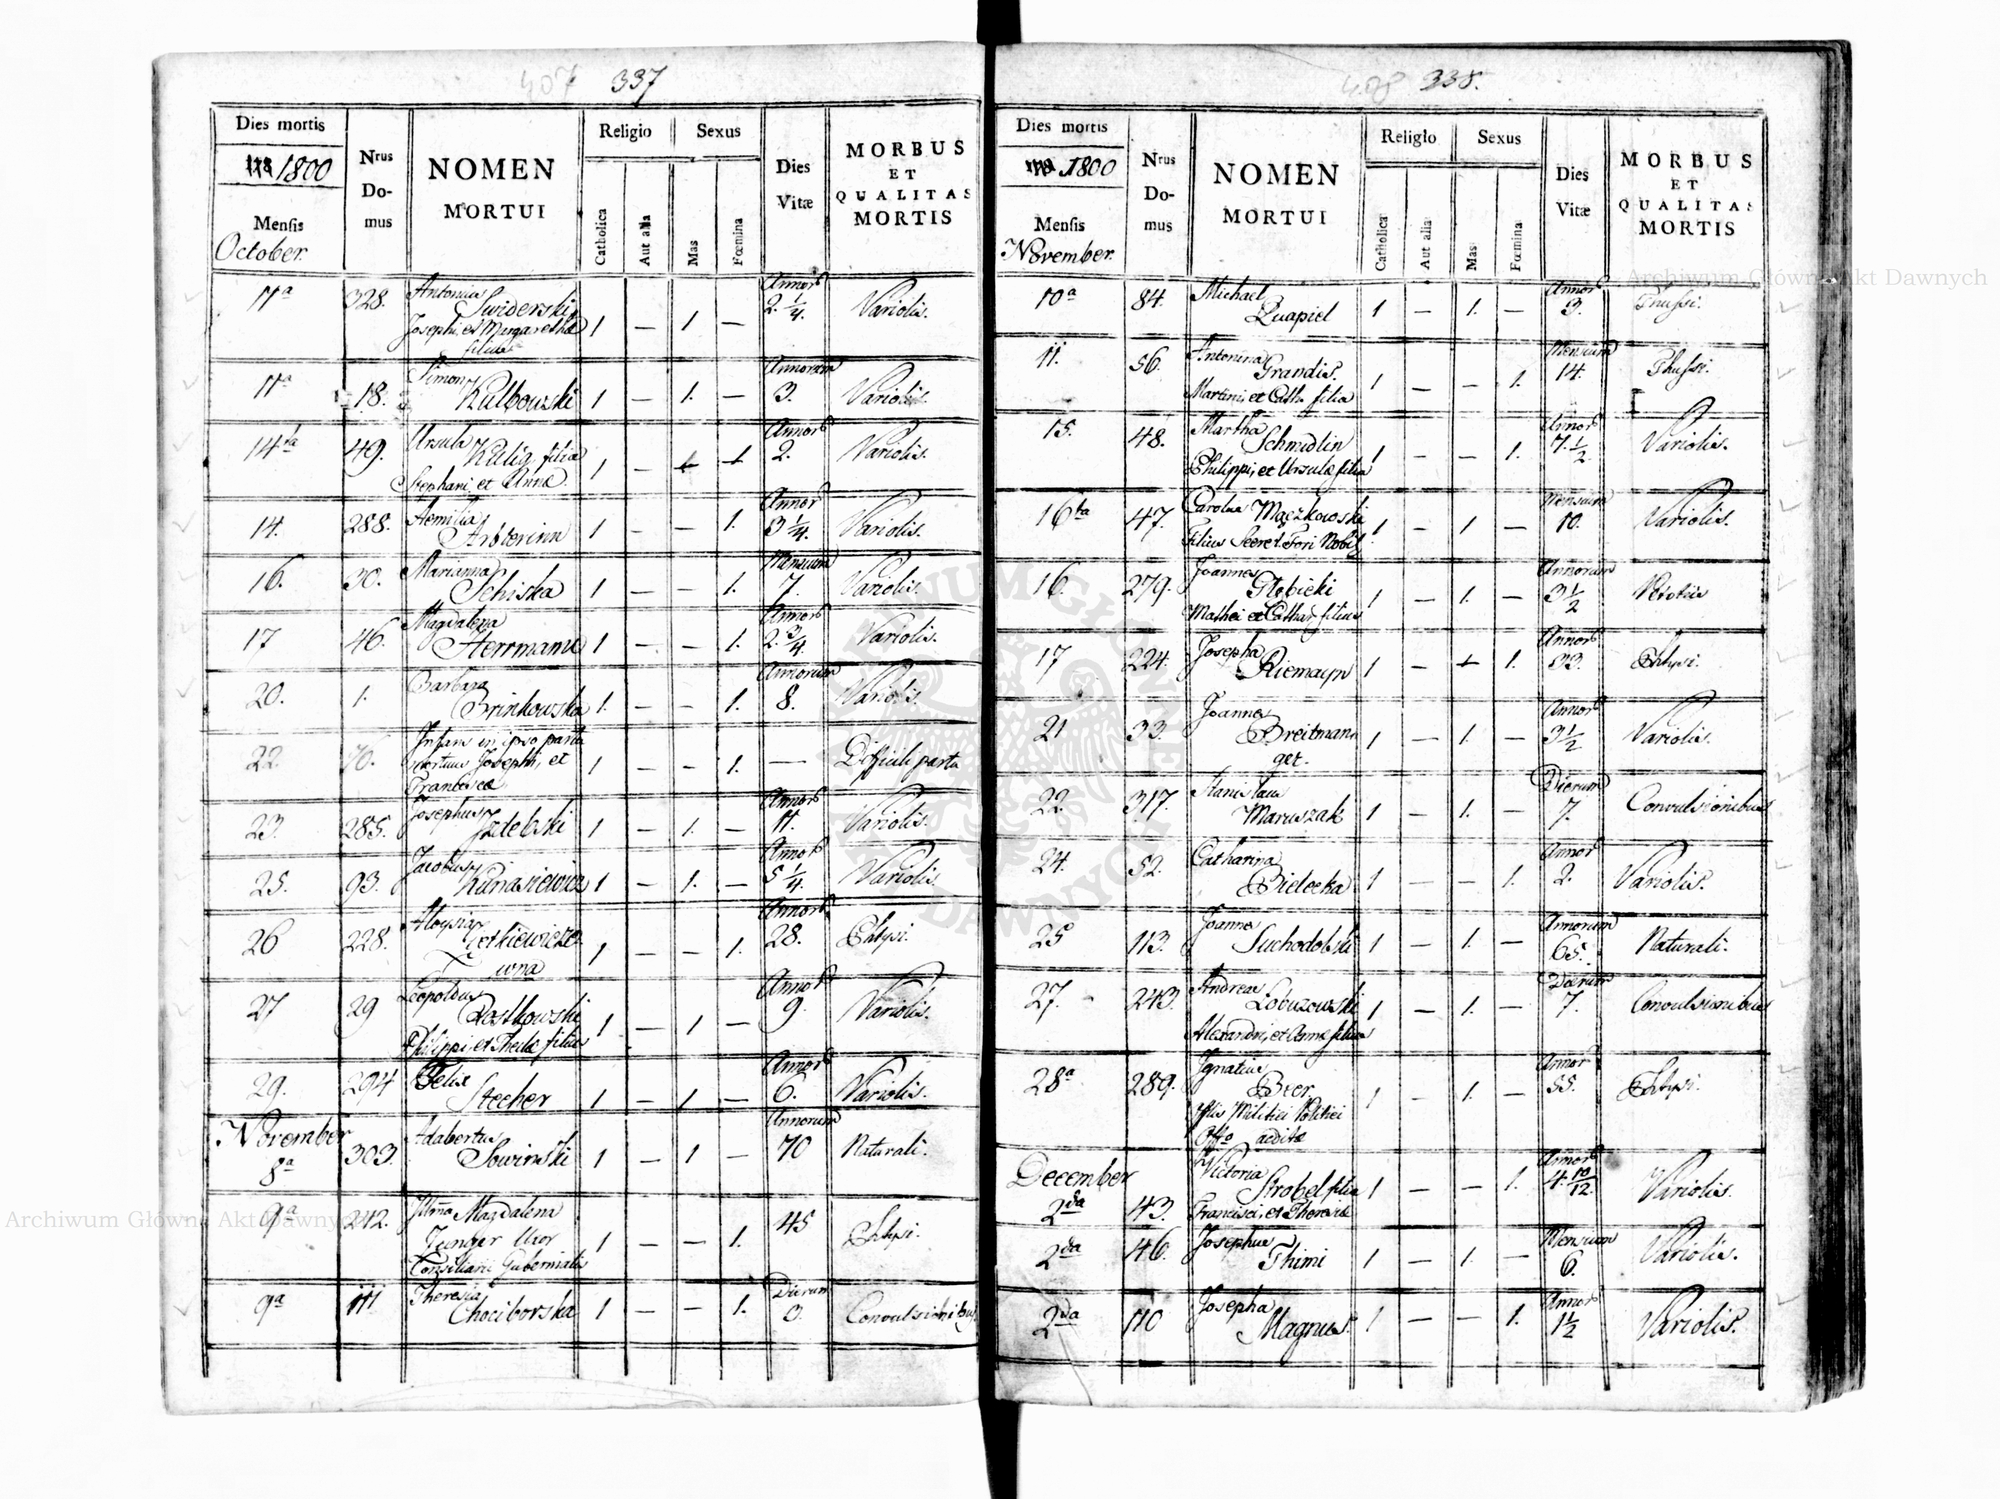 407 337
Dies mortis
1800
Mensis
October
Nrus
Do-
mus
NOMEN
MORTUI
Religio
Catholica
Aut alia
Sexus
Mas
Fœmina
Dies
Vitæ
MORBUS
ET
QUALITAS
MORTIS
11a 328. Antonius Annor
Swiderski 1 — 1 — 2 1/4. Variolis.
Josephi et Margarethæ
filius
11a 18. Simon Annorum
Kulbowski 1 — 1. — 3. Variolis.
14ta 49. Ursula Annor
Kulig filia 1 — 1 2. Variolis.
Stephani et Annæ
14. 288. Aemilia Annor
Arbterinn 1 — — 1. 3 1/4. Variolis.
16. 30. Marianna Mensium
Schiska 1 — — 1. 7. Variolis.
17 46. Magdalena Annor
Herrmann 1 — — 1. 2. 3/4. Variolis.
20. 1. Barbara Annorum
Brinkowska 1. — — 1. 8. Variolis.
22. 70. Infans in ipso partu
mortuus Josephi, et 1 — — 1. — Difficili partu
Francisca
23. 285. Josephus Annor
Izdebski 1 — 1. — 11. Variolis.
25. 93. Jacobus Annor
Kunasiewicz 1 — 1. — 5 1/4. Variolis.
26 228. Aloysia Annor
1 — — 1. 28. Phtysi.
wna
27 29 Leopoldus Annor
Rostkowski 1 — 1 — 9. Variolis.
Philippi, et Theclæ filius
29. 294 Felix Annor
Stecher 1 — 1 — 6. Variolis.
November 303. Adabertus Annorum
8a Sowinski 1 — 1 — 70 Naturali.
9a 242. Illma Magdalena 45
Junger Uxor 1 — — 1. Phtysi.
Consiliarii Gubernialis
9a 111 Theresia Dierum
Chociborska 1 — — 1. 3. Convulsionibus
408 338.
Dies mortis
1800
Mensis
November
Nrus
Do-
mus
NOMEN
MORTUI
Religio
Catholica
Aut alia
Sexus
Mas
Fœmina
Dies
Vitæ
MORBUS
ET
QUALITAS
MORTIS
10a 84. Michael Annor
Kwapiel 1 — 1. — 3. Thussi.
11. 56. Antonina Mensium
Grandis. 1 — — 1. 14. Thussi.
Martini, et Cath. filia
15. 48. Martha Annor
Schmidlin 1 — — 1. 7. 1/2 Variolis.
Philippi, et Ursulæ filia
16ta 47. Carolus Mączkowski Mensium
1 — 1 — 10. Variolis.
Filius Secret. Fori Nobil
16. 279. Joannes Annorum
Głębicki 1 — 1. — 3 1/2
Mathei et Cathar filius
17 224. Josepha Annor
Riemayn 1 — 1. 33. Phtysi.
21 33 Joannes Annor
Breitman 1 — 1. — 3 1/2 Variolis.
ger.
22. 317. Stanislaus Dierum
Maruszak 1 — 1. — 7. Convulsionibus
24. 52. Catharina Annor
Bielecka 1 — — 1. 2. Variolis.
25 113. Joannes Annorum
Suchodolski 1 — 1. — 65. Naturali.
27. 243. Andreas Dierum
Łobuzowski 1 — 1. — 7. Convulsionibus
Alexandri, et Annæ filius
28a 289. Ignatius Annor
Bier 1 — 1. — 55. Phtysi.
Militiei Politiei
December Victoria Annor
2da 43. Strobel filia 1 — — 1. 4. 10/12. Variolis.
Francisci, et Theresiæ
2da 46. Josephus Mensium
Thimi 1 — 1. — 6. Variolis.
2da 110 Josepha Annor
Magnus. 1 — — 1. 1 1/2 Variolis.
Archiwum Główne Akt Dawnych
Archiwum Główne Akt Dawnych
ARCHIWUM GŁÓWNE AKT DAWNYCH